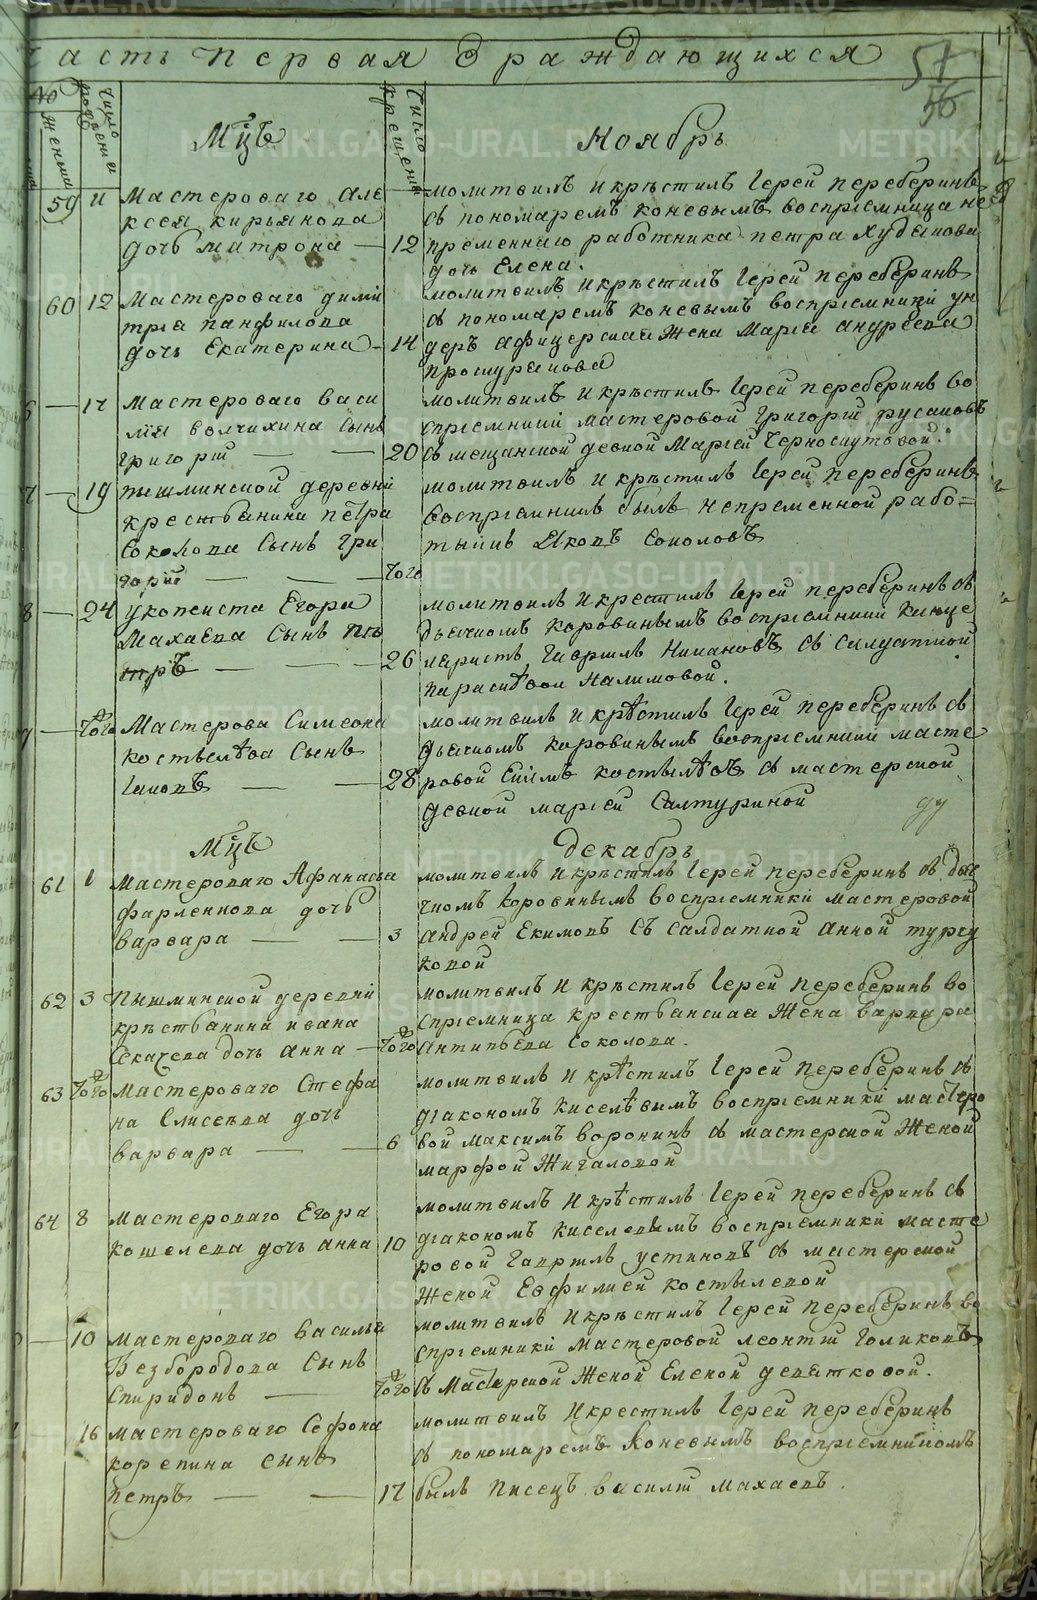 Часть первая Ѡ раждающихся
57
56
Женска
число рожденiя
число крещенiя
Мцъ Ноябрь
59 11 Мастероваго Але
ксея кирьянова
дочь матрона — 12
молитвилъ и крѣстилъ Iерей переберинъ
съ пономаремъ коневымъ воспрiемница не
пременнаго работника петра Худякова
дочь Елена.
60 12 Мастероваго дими
трiя панфилова
дочь Екатерина — 14
молитвилъ и крѣстилъ Iерей переберинъ
съ пономаремъ коневымъ воспрiемники ун
деръ афицерская Жена Марiя андреева
проскурякова
17 Мастероваго васи
лiя волчихина сынъ
григорiй — — 20
молитвилъ и крѣстилъ Iерей переберинъ во
спрiемники мастеровой григорiй русановъ
съ мещанской девкой Марiей Черноскутовой.
7 — 19 пышминской деревни
крестьянина петра
Соколова Сынъ гри
горiй — — того
молитвилъ и крѣстилъ Iерей переберинъ
воспрiемникъ былъ непременной рабо=
тникъ Яковъ Соколовъ
8 — 24 укописта Егора
Махаева Сынъ пе
тръ — — 26
молитвилъ и крестилъ Iерей переберинъ съ
дьячкомъ коровинымъ воспрiемники канце
ляристъ гаврилъ Никановъ съ салдаткой
параскѣвой Налимовой.
того Мастерова Симеона
костылѣва Сынъ
Iаковъ — — 28
молитвилъ и крѣстилъ Iерей переберинъ съ
дьячкомъ коровинымъ воспрiемники масте
ровой Екимъ костылѣвъ съ мастерской
девкой марiей Салтуриной
Мцъ декабрь
61 1 Мастероваго Афанасья
фарленкова дочь
варвара — — 3
молитвилъ и крѣстилъ Iерей переберинъ съ дья
чкомъ коровинымъ воспрiемники мастеровой
андрей Екимовъ съ салдаткой анной турсу
ковой
62 3 Пышминской деревни
крѣстьянина ивана
Секачева дочь анна — того
молитвилъ и крѣстилъ Iерей переберинъ во
спрiемница крестьянская Жена варвара
Антипьева Соколова.
63 того Мастероваго Стефа
на Елисеѣва дочь
варвара — — 6
молитвилъ и крѣстилъ Iерей переберинъ съ
дiакономъ киселѣвымъ воспрiемники мастеро
вой максимъ воронинъ съ мастерской Женой
марфой Жигаловой
64 8 Мастероваго Егора
кошелева дочь анна 10
молитвилъ и крѣстилъ Iерей переберинъ съ
дiакономъ киселевымъ воспрiемники масте
ровой гаврилъ устиновъ съ мастерской
Женой Евфимией костылевой
10 мастероваго василья
Безбородова Сынъ
Спиридонъ — того
молитвилъ и крѣстилъ Iерей переберинъ во
спрiемники мастеровой леонтiй Голиковъ
съ Мастерской Женой Еленой девятковой.
16 мастероваго Софона
корепина сынъ
петръ — — 17
молитвилъ и крестилъ Iерей переберинъ
съ пономаремъ Коневымъ воспрiемникомъ
былъ писецъ василiй махаевъ.